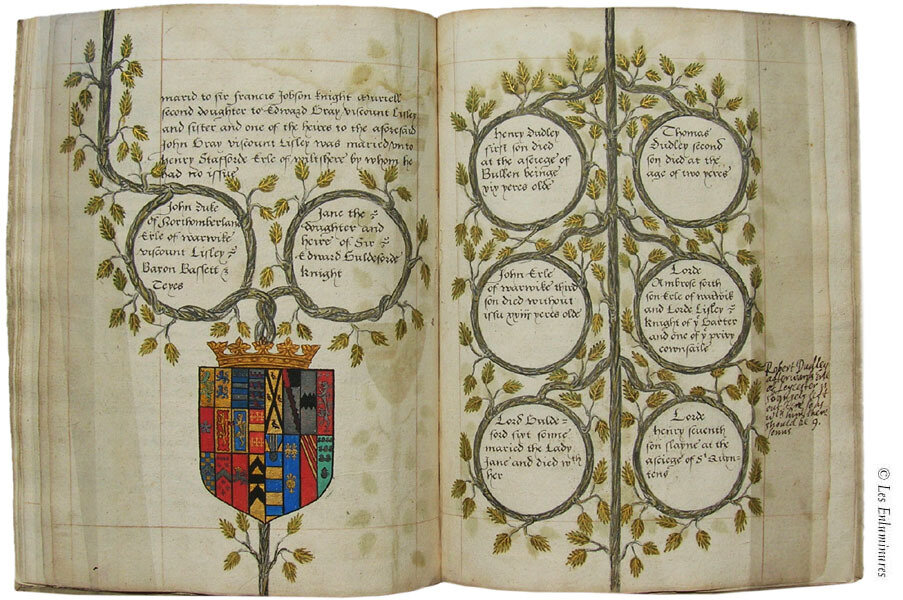 marid to sir francis Jobson knight Murrell
second doughter to Edward Gray viscount Lisley
and sister and one of the heires to the aforesaid
John Gray viscount Lisley was maried unto
Henry Stafforde Erle of wiltshere by whom he
had no issue
John Duke
of Northomberlan
Erle of warwike
viscount Lisley
Baron Bassett &
Teyes
Jane the
doughter and
heire of Sir
Edward Guldeforde
knight
Henry Dudley
first son died
at the asciege of
Bullen beinge
xix yeres olde
Thomas
Dudley second
son died at the
age of two yeres
John Erle
of warwike third
son died without
issu xxiiij yeres olde
Lord
Ambrose fourth
son Erle of warwik
and Lorde Lisley
knight of ye Garter
and one of ye privy
counsaile
Lord Gulde=
ford sixt sonne
maried the Lady
Jane and died wth
her
Lord
henry seventh
son slayne at the
asciege of St Quin-
tens
Robert Dudley
afterwards Erle
of Leycester is
left
out
with him there
should be 9.
sonns
© Les Enluminures